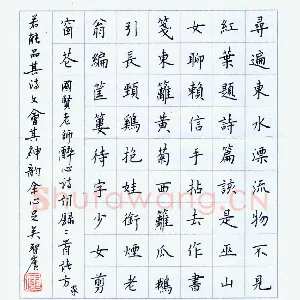 尋遍東水漂流物不見
紅葉題詩篇該是巫山
女聊賴信手拈去作書
箋東籬黃菊西籬瓜鵝
引長頸鷄抱娃銜煙老
翁編筐簍待字少女剪
窗花 國賢老師醉心詩詞 二首請方家
若能品其詩文會其神韻余心足矣
Shufawang.cn